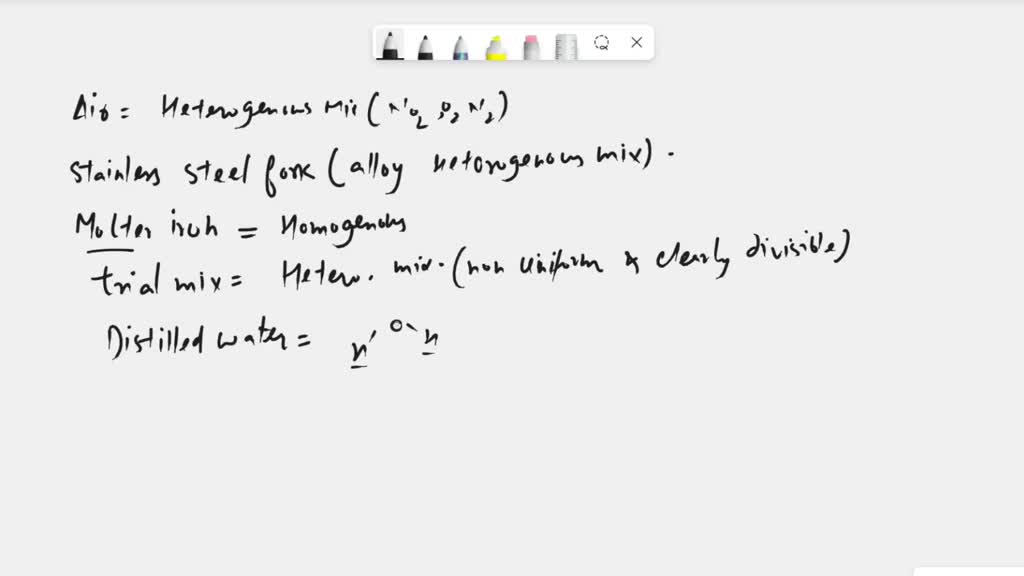 Air = Heterogenous Mix (NO2, O2, N2)
Stainless steel fork (alloy Heterogenous mix).
Molten iron = Homogenous
trial mix = Hetero. mix. (non uniform & clearly divisible)
Distilled water = H O H